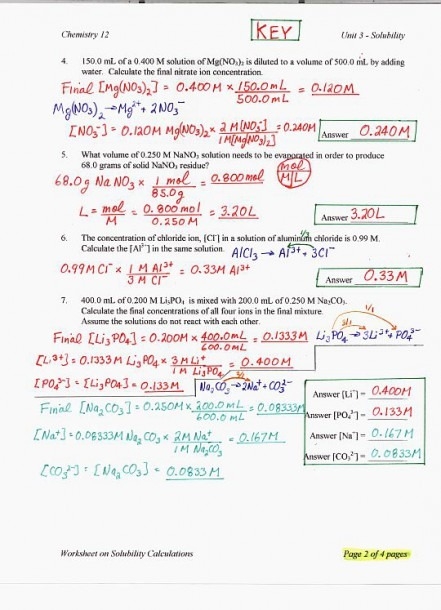 Chemistry 12
KEY
Unit 3 - Solubility
4. 150.0 mL of a 0.400 M solution of Mg(NO₃)₂ is diluted to a volume of 500.0 mL by adding
water. Calculate the final nitrate ion concentration.
Final [Mg(NO₃)₂] = 0.400 M × 150.0mL / 500.0mL = 0.120M
Mg(NO₃)₂ → Mg²⁺ + 2NO₃⁻
[NO₃⁻] = 0.120M Mg(NO₃)₂ × 2M[NO₃⁻] / 1M[Mg(NO₃)₂] = 0.240M
Answer 0.240M
5. What volume of 0.250 M NaNO₃ solution needs to be evaporated in order to produce
68.0 grams of solid NaNO₃ residue?
mol
M|L
68.0g NaNO₃ × 1 mol / 85.0g = 0.800mol
L = mol / M = 0.800mol / 0.250M = 3.20L
Answer 3.20L
6. The concentration of chloride ion, [Cl⁻] in a solution of aluminum chloride is 0.99 M.
Calculate the [Al³⁺] in the same solution.
AlCl₃ → Al³⁺ + 3Cl⁻
0.99M Cl⁻ × 1 M Al³⁺ / 3 M Cl⁻ = 0.33M Al³⁺
Answer 0.33M
7. 400.0 mL of 0.200 M Li₃PO₄ is mixed with 200.0 mL of 0.250 M Na₂CO₃.
Calculate the final concentrations of all four ions in the final mixture
Assume the solutions do not react with each other.
1/1
3/1
Final [Li₃PO₄] = 0.200M × 400.0mL / 600.0mL = 0.1333M
Li₃PO₄ → 3Li⁺ + PO₄³⁻
[Li⁺] = 0.1333M Li₃PO₄ × 3M Li⁺ / 1M Li₃PO₄ = 0.400M
[PO₄³⁻] = [Li₃PO₄] = 0.133M
Na₂CO₃ → 2Na⁺ + CO₃²⁻
Final [Na₂CO₃] = 0.250M × 200.0mL / 600.0mL = 0.08333M
[Na⁺] = 0.08333M Na₂CO₃ × 2M Na⁺ / 1M Na₂CO₃ = 0.167M
[CO₃²⁻] = [Na₂CO₃] = 0.0833M
Answer [Li⁺] = 0.400M
Answer [PO₄³⁻] = 0.133M
Answer [Na⁺] = 0.167M
Answer [CO₃²⁻] = 0.0833M
Worksheet on Solubility Calculations
Page 2 of 4 pages